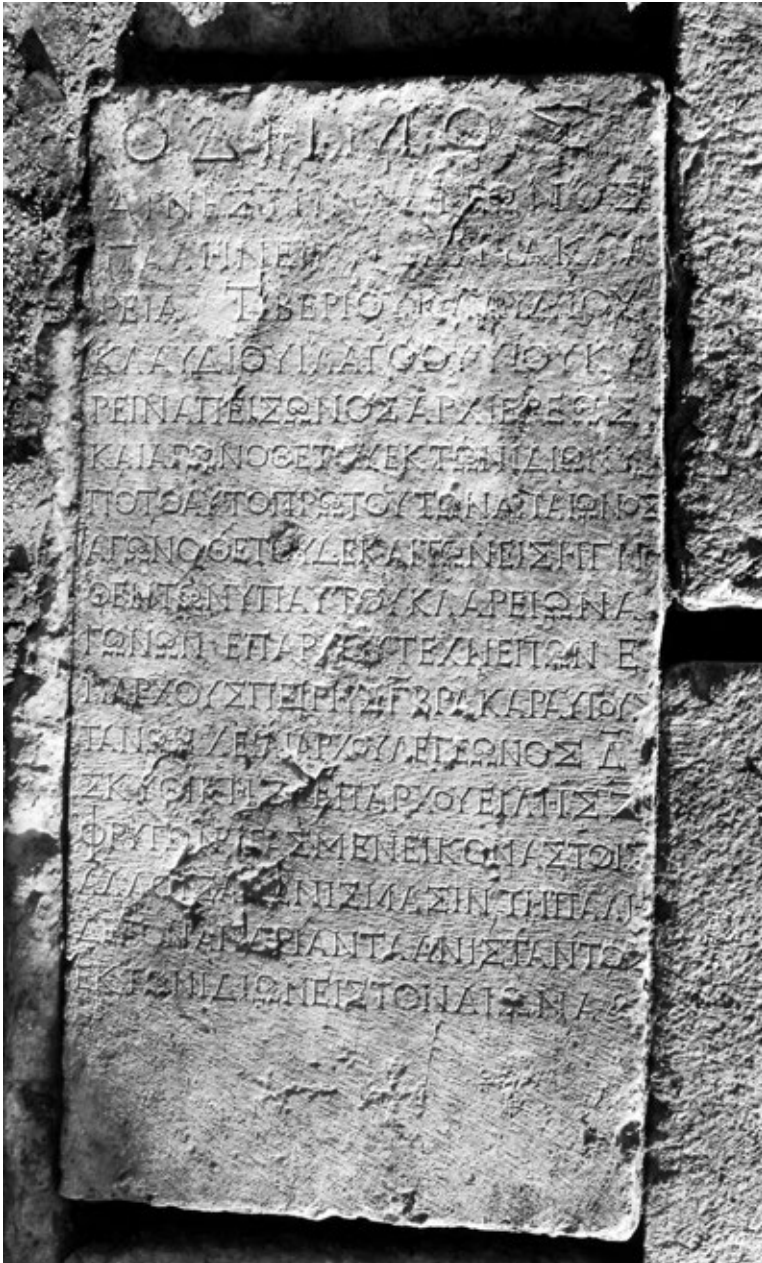 Ο ΔΗΜΟΣ
ΠΑΛΗΝ ΚΛΑ
ΡΕΙΑ ΤΙΒΕΡΙΟΥ ΚΛΑΥΔΙΟΥ
ΚΛΑΥΔΙΟΥ ΥΙΟΥ ΚΥ
ΡΕΙΝΑ ΠΕΙΣΩΝΟΣ ΑΡΧΙΕΡΕΩΣ
ΚΑΙ ΑΓΩΝΟΘΕΤΟΥ ΕΚ ΤΩΝ ΙΔΙΩΝ Υ
ΠΟ ΤΟ ΑΥΤΟ ΠΡΩΤΟΥ ΤΩΝ ΑΠ ΑΙΩΝΟΣ
ΑΓΩΝΟΘΕΤΟΥ ΔΕ ΚΑΙ ΤΩΝ ΕΙΣΗΓΗ
ΘΕΝΤΩΝ ΥΠ ΑΥΤΟΥ ΚΛΑΡΕΙΩΝ Α
ΓΩΝΩΝ ΕΠΑΡΧΟΥ ΤΕΧΝΕΙΤΩΝ Ε
ΠΑΡΧΟΥ ΣΠΕΙΡΗΣ Γ ΒΡΑΚΑΡΑΥΓΟΥ
ΤΑΝΩΝ ΧΕΙΛΙΑΡΧΟΥ ΛΕΓΕΩΝΟΣ Δ
ΣΚΥΘΙΚΗΣ ΕΠΑΡΧΟΥ ΕΙΛΗΣ Ζ
ΦΡΥΓΩΝ ΜΕΝ ΕΙΚΟΝΑΣ ΤΟΙΣ
ΑΛΛΟΙΣ ΑΓΩΝΙΣΜΑΣΙΝ ΤΗ ΠΑΛΗ
ΔΕ ΤΟΝ ΑΝΔΡΙΑΝΤΑ ΑΝΙΣΤΑΝΤΟΣ
ΕΚ ΤΩΝ ΙΔΙΩΝ ΕΙΣ ΤΟΝ ΑΙΩΝΑ